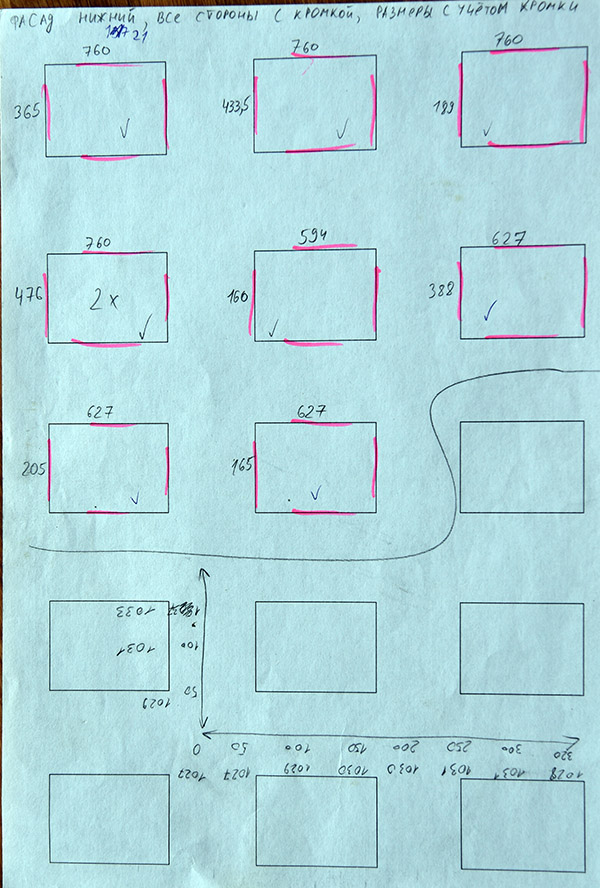 ФАСАД НИЖНИЙ, ВСЕ СТОРОНЫ С КРОМКОЙ, РАЗМЕРЫ С УЧЁТОМ КРОМКИ
21
760 760 760
365 433,5 189
760 594 627
476 2x 160 388
627 627
205 165
1033
1031 100
50
1029
0 50 100 150 200 250 300 320
1027 1027 1029 1030 1030 1031 1031 1028